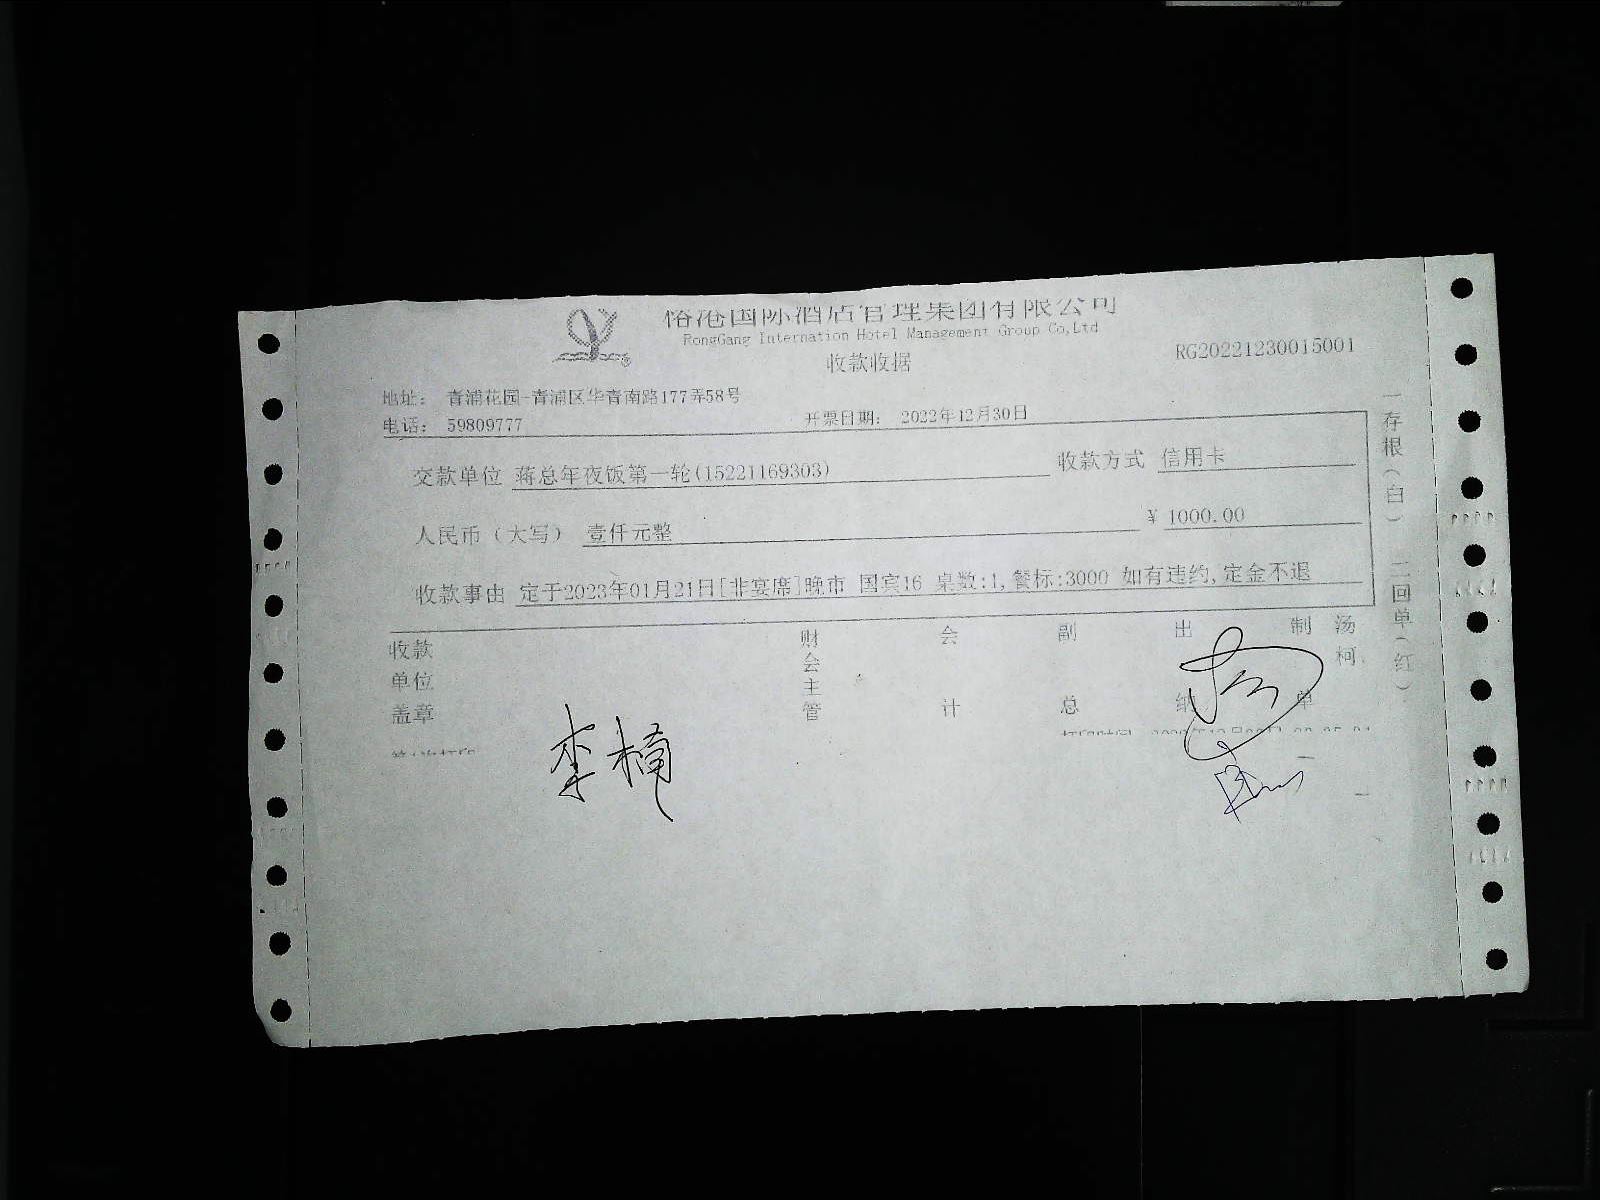 国际酒店管理集团有限公司
RongGang Internation Hotel Management Group Co,Ltd
收款收据
RG20221230015001
地址: 青浦花园-青浦区华青南路177弄58号
电话: 59809777
开票日期: 2022年12月30日
交款单位 蒋总年夜饭第一轮(15221169303)
收款方式 信用卡
人民币（大写） 壹仟元整
¥ 1000.00
收款事由 定于2023年01月21日[非宴席]晚市 国宾16 桌数:1,餐标:3000 如有违约,定金不退
收款单位盖章
财会主管
会计
副总
出纳
制单
汤柯
一存根（白） 二回单（红）
李楠